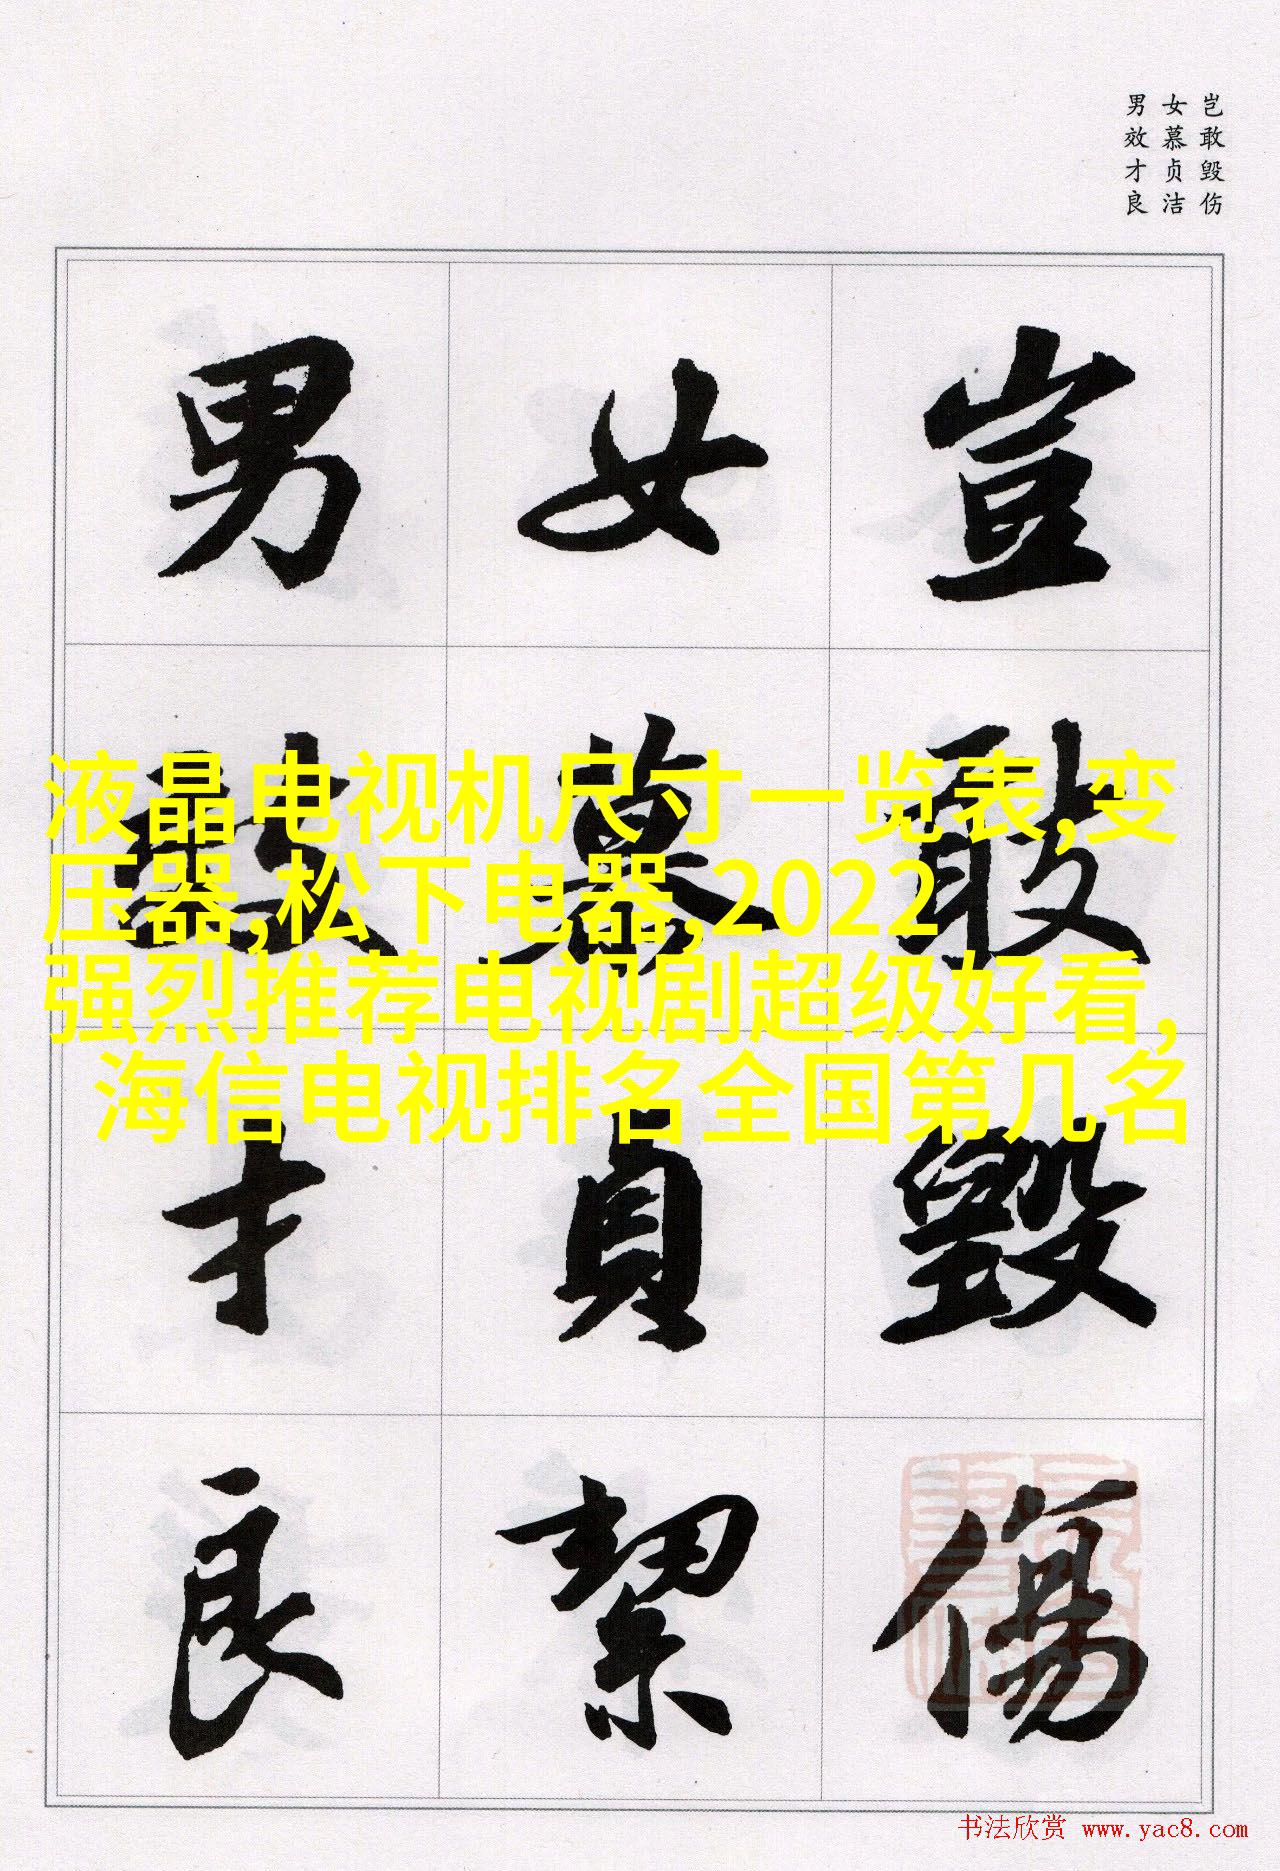 岂敢毁伤
女慕贞洁
男效才良
豈敢毀傷
女慕貞絜
男效才良
液晶电视机尺寸一览表,变
压器,松下电器,2022
强烈推荐电视剧超级好看,
海信电视排名全国第几名
书法欣赏 www.yac8.com